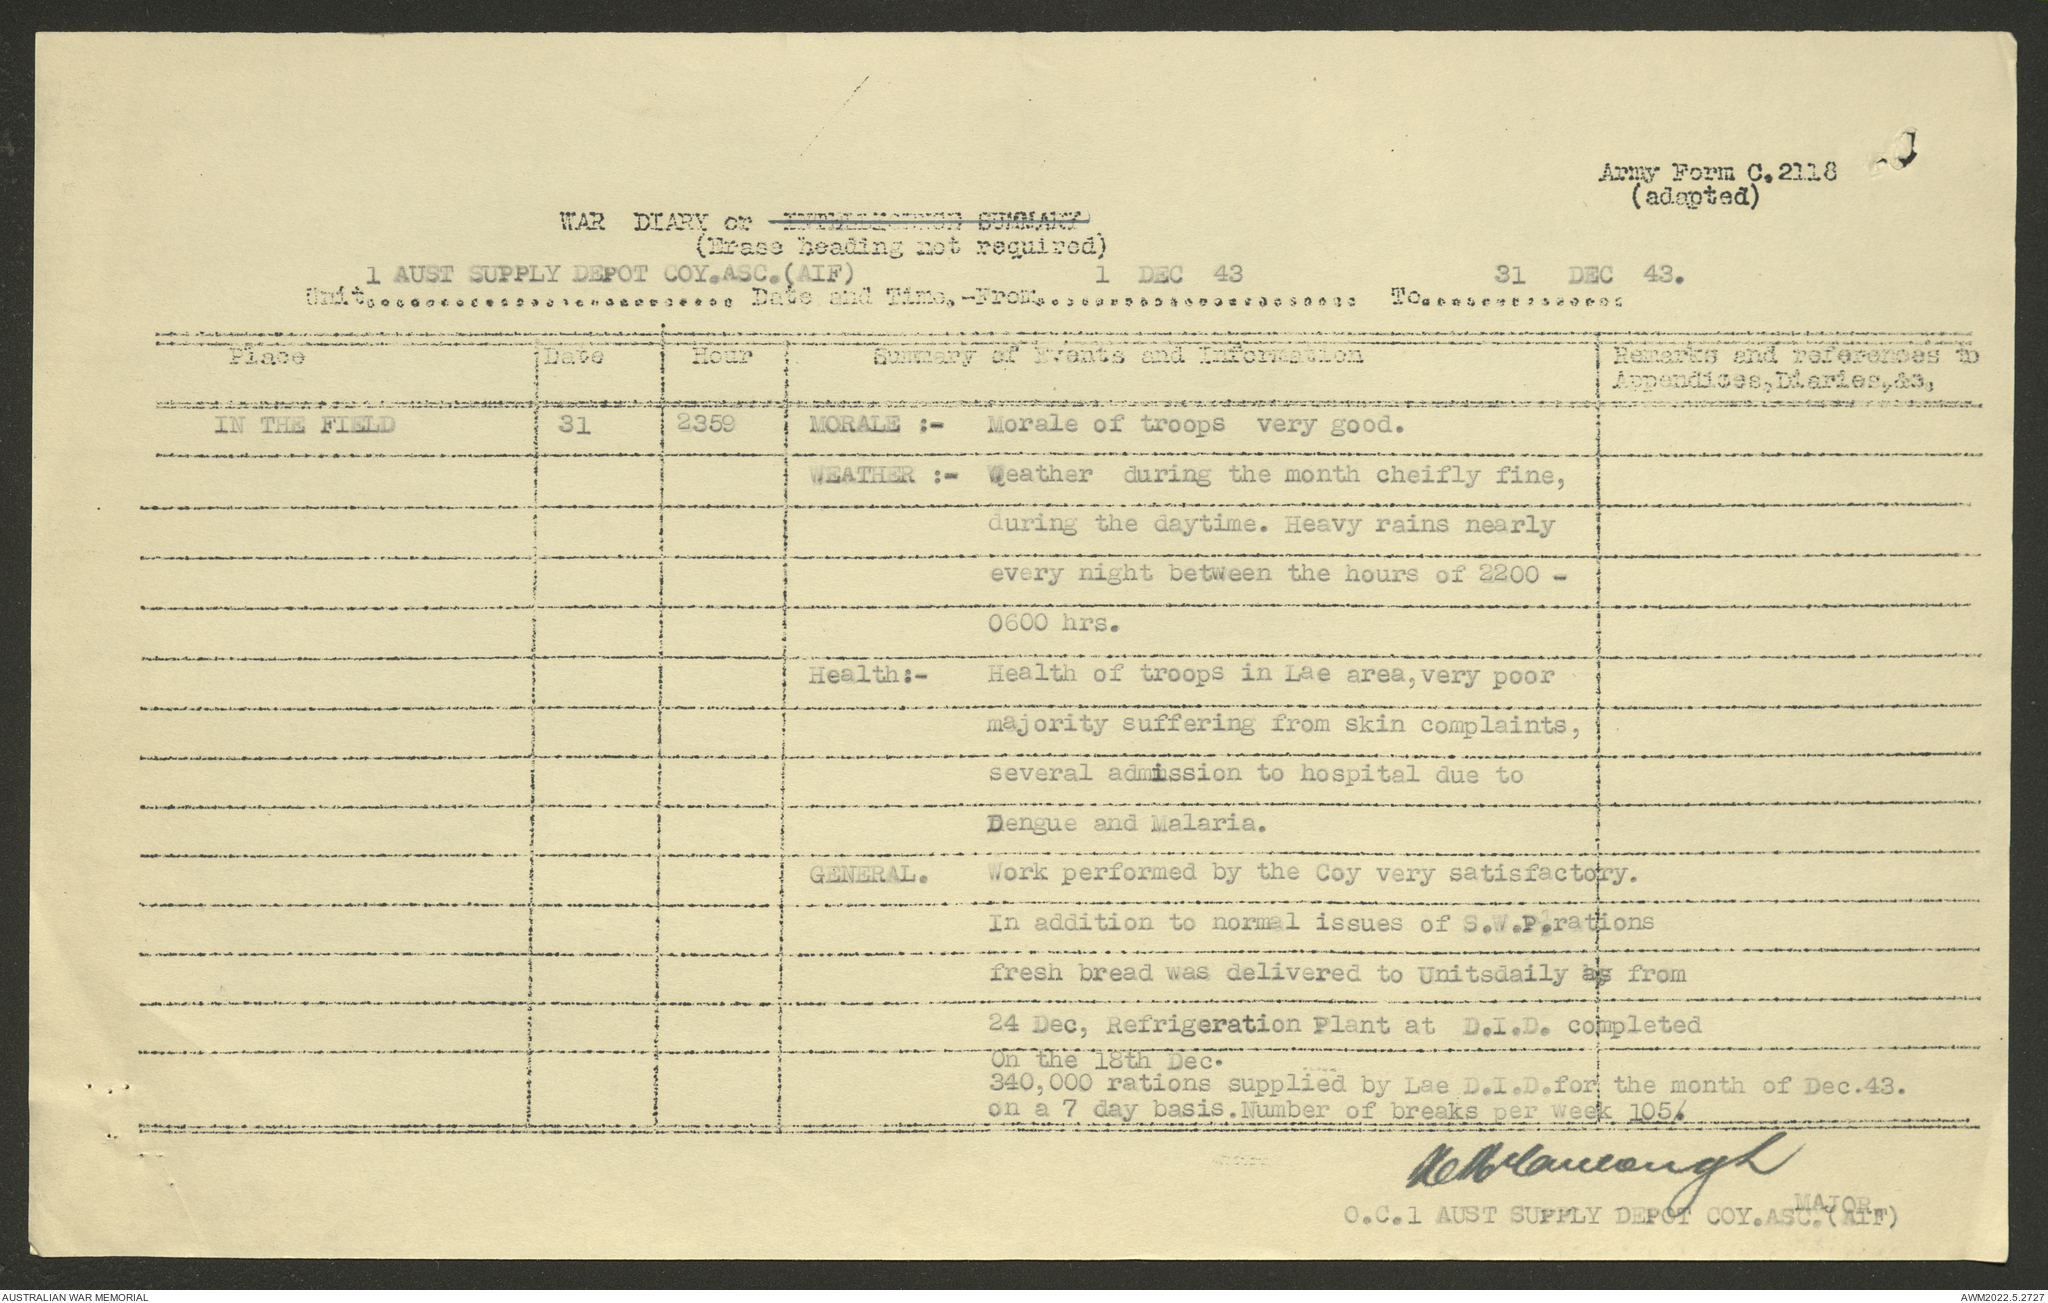 Army Form C.2118
(adapted)
WAR DIARY or INTELLIGENCE SUMMARY
(Erase heading not required)
1 AUST SUPPLY DEPOT COY.ASC.(AIF) 1 DEC 43 31 DEC 43.
Unit........................ Date and Time,-From..................... To..............
Place Date Hour Summary of Events and Information Remarks and references to
Appendices,Diaries,&c,
IN THE FIELD 31 2359 MORALE :- Morale of troops very good.
WEATHER :- Weather during the month cheifly fine,
during the daytime. Heavy rains nearly
every night between the hours of 2200 -
0600 hrs.
Health:- Health of troops in Lae area,very poor
majority suffering from skin complaints,
several admission to hospital due to
Dengue and Malaria.
GENERAL. Work performed by the Coy very satisfactory.
In addition to normal issues of S.W.P.rations
fresh bread was delivered to Unitsdaily as from
24 Dec, Refrigeration Plant at D.I.D. completed
On the 18th Dec.
340,000 rations supplied by Lae D.I.D.for the month of Dec.43.
on a 7 day basis.Number of breaks per week 105.
MAJOR.
O.C.1 AUST SUPPLY DEPOT COY.ASC.(AIF)
AUSTRALIAN WAR MEMORIAL AWM2022.5.2727